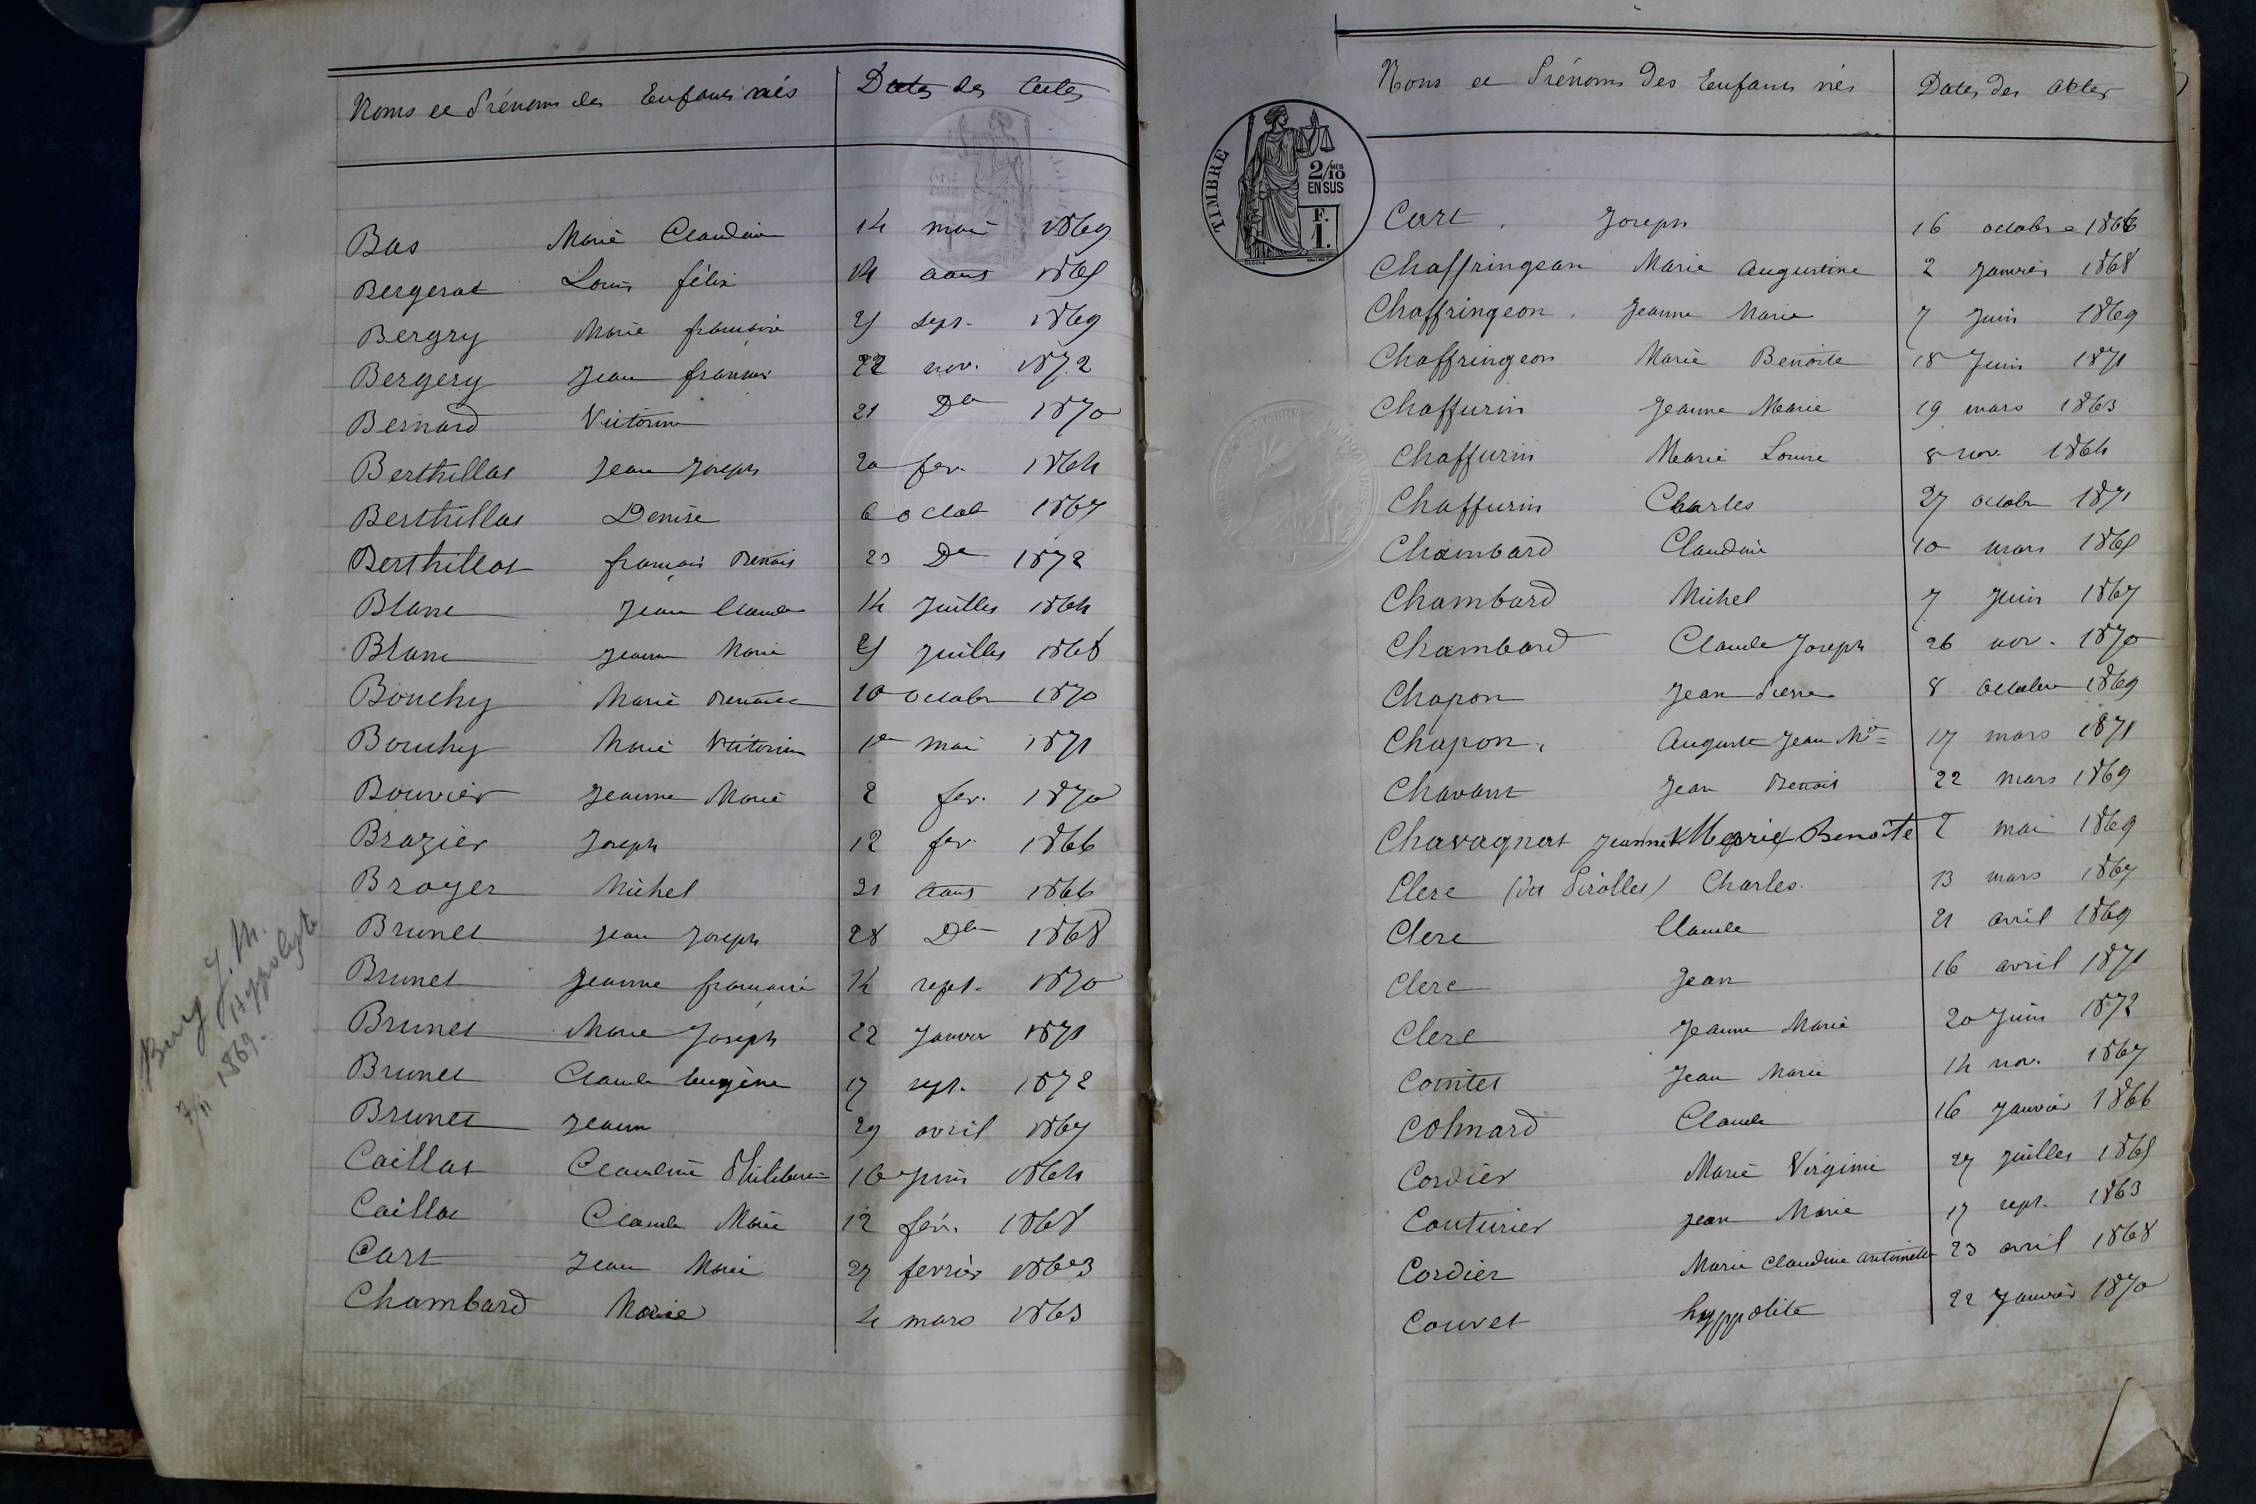 Noms et Prénoms des Enfants nés Dates des Actes
Bas Marie Claudine 14 mai 1869
Bergerat Louis félix 14 aout 1865
Bergry Marie françoise 25 sept. 1869
Bergery Jean françois 22 nov. 1872
Bernard Victorine 21 Dbre 1870
Berthillot Jean Joseph 20 fev. 1864
Berthillot Denise 6 octob 1867
Berthillot françois Benoit 23 Dbre 1872
Blanc Jean Claude 14 Juillet 1864
Blanc Jeanne Marie 25 Juillet 1868
Bouchy Marie 10 octobre 1870
Bouchy Marie Victorine 1er mai 1871
Bouvier Jeanne Marie 2 fev. 1870
Brazier Joseph 12 fev. 1866
Broyer Michel 21 aout 1866
Brunet Jean Joseph 28 Dbre 1868
Brunet Jeanne françoise 14 sept. 1870
Brunet Marie Joseph 22 Janvier 1871
Brunet Claude Eugène 17 sept. 1872
Brunet Jeanne 29 avril 1867
Caillat Claudine Philiberte 16 Juin 1864
Caillat Claude Marie 12 fév. 1868
Cart Jean Marie 27 fevrier 1863
Chambard Marie 4 mars 1865
Buy J. M.
Hyppolyte
7/11 1869.
Noms et Prénoms des Enfants nés Dates des Actes
TIMBRE
2/10 MES
EN SUS
F.
1.
Cart Joseph 16 octobre 1866
Chaffringeon Marie Augustine 2 Janvier 1868
Chaffringeon Jeanne Marie 7 Juin 1869
Chaffringeon Marie Benoite 18 Juin 1871
Chaffurin Jeanne Marie 19 mars 1863
Chaffurin Marie Louise 8 nov. 1864
Chaffurin Charles 27 octobre 1871
Chambard Claudine 10 mars 1865
Chambard Michel 7 Juin 1867
Chambard Claude Joseph 26 nov. 1870
Chapon Jean Pierre 8 octobre 1869
Chapon Auguste Jean Mie 17 mars 1871
Chavant Jean Benoit 22 mars 1869
Chavagnat Jeanne Marie Benoîte 2 mai 1869
Clerc (des Pirolles) Charles. 13 mars 1867
Clerc Claude 21 avril 1869
Clerc Jean 16 avril 1871
Clerc Jeanne Marie 20 Juin 1872
Comtet Jean Marie 14 nov. 1867
Colmard Claude 16 Janvier 1866
Cordier Marie Virginie 27 Juillet 1865
Couturier Jean Marie 17 sept. 1863
Cordier Marie Claudine Antoinette 23 avril 1868
Couvet hyppolite 22 Janvier 1870